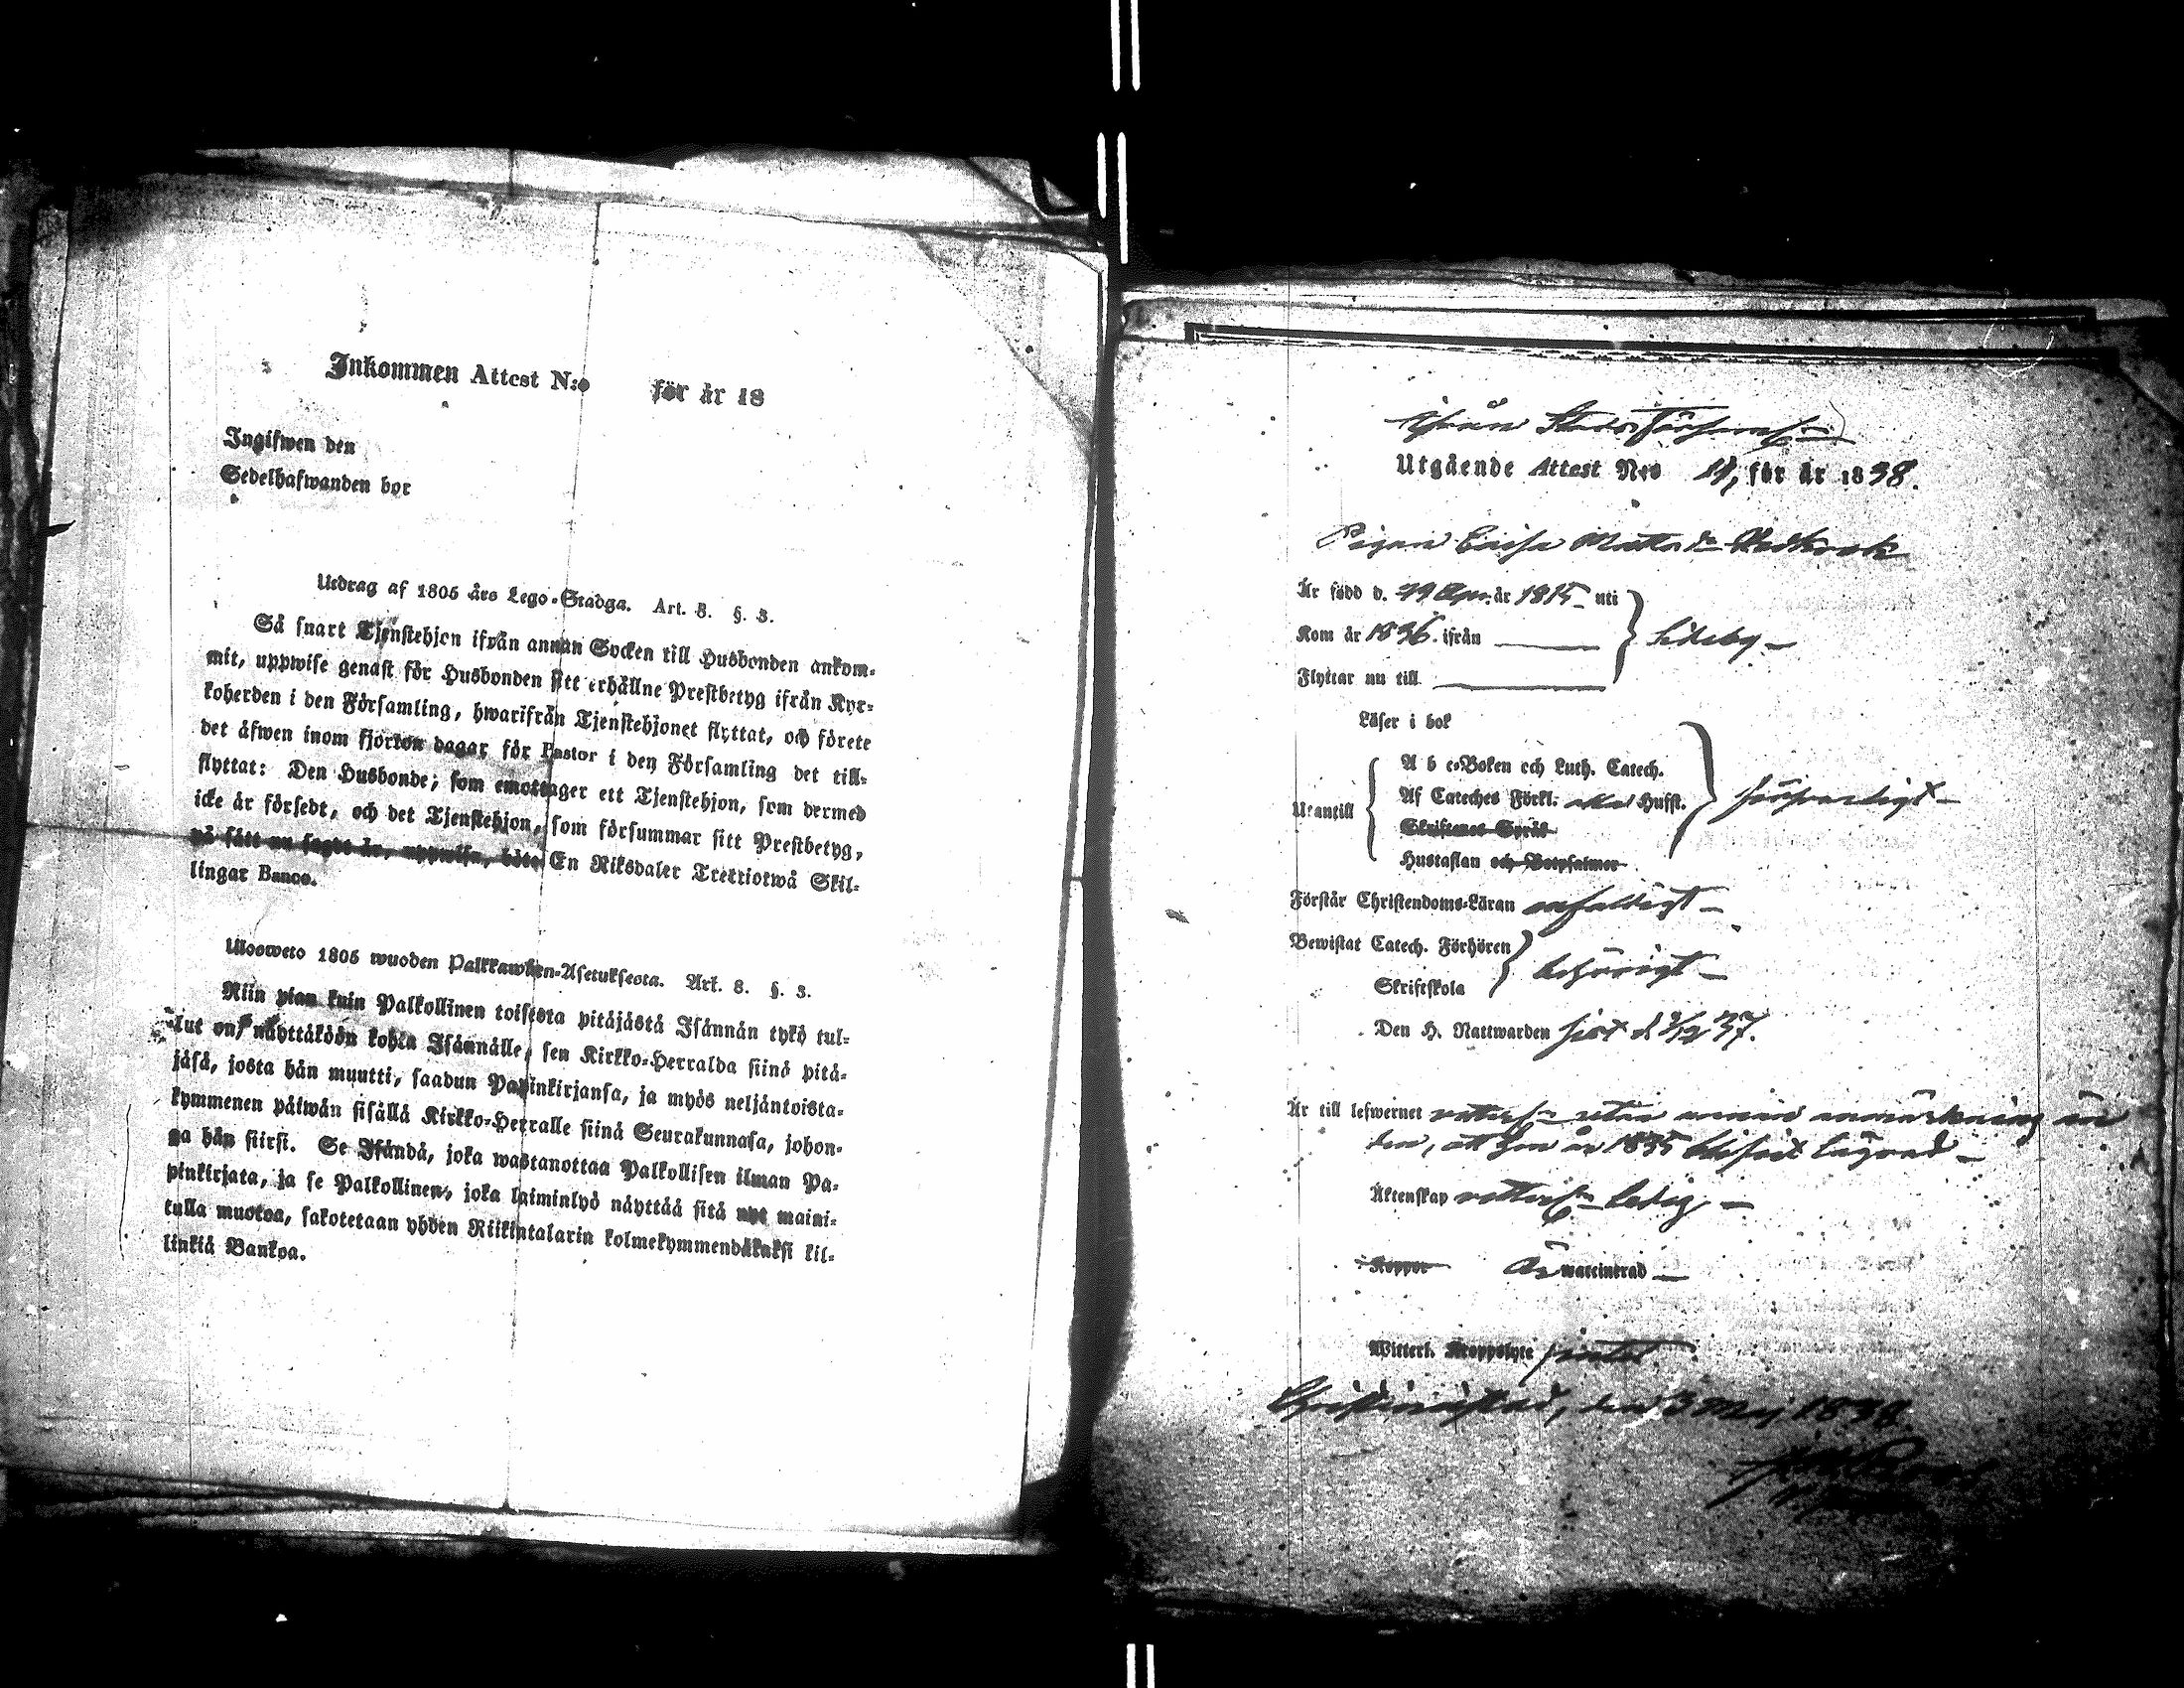 Inkommen Attest N:o för år 18
Ingifwen den
Sedelhafwanden bor
Utdrag af 1805 års Lego-Stadga. Art. 8. §. 3.
Så snart Tjenstehjon ifrån annan Socken till Husbonden ankom-
mit, uppwise genast för Husbonden sitt erhållne Prestbetyg ifrån Kyr-
koherden i den Församling, hwarifrån Tjenstehjonet flyttat, och förete
det äfwen inom fjorton dagar för Pastor i den Församling det till-
flyttat: Den Husbonde; som emottager ett Tjenstehjon, som dermed
icke är försedt, och det Tjenstehjon, som försummar sitt Prestbetyg,
på sätt nu sagdt är, uppwisa, böte En Riksdaler Trettiotwå Skil-
lingar Banco.
Ulosweto 1805 wuoden Palkkawäen-Asetuksesta. Art. 8. §. 3.
Niin pian kuin Palkollinen toisesta pitäjästä Isännän tykö tul-
lut on, näyttäköön kohta Isännälle, sen Kirkko-Herralda siinä pitä-
jäsä, josta hän muutti, saadun Papinkirjansa, ja myös neljäntoista-
kymmenen päiwän sisällä Kirkko-Herralle siinä Seurakunnasa, johon-
ga hän siirsi. Se Isändä, joka wastanottaa Palkollisen ilman Pa-
pinkirjata, ja se Palkollinen, joka laiminlyö näyttää sitä nyt maini-
tulla muotoa, sakotetaan yhden Riikintalarin kolmekymmendäkaksi kil-
linkiä Bankoa.
Ifrån Stads Församl:n
Utgående Attest N:ro 14, för år 1838.
Pigan Caisa Mattsd:r
Är född d. 29 Apr. år 1815 uti
Kom år 1836. ifrån Sideby
Flyttar nu till
Läser i bok
A b c-Boken och Luth. Catech.
Utantill Af Cateches Förkl. alla Hufst. försvarligt
Skriftenes Språk
Hustaflan och Botpsalmer
Förstår Christendoms-Läran enfaldigt
Bewistat Catech. Förhören behörigt
Skriftskola
Den H. Nattwarden sist d. 3/12 37.
Är till lefwernet utan annan anmärkning än
den, att hon år 1835 blifvit lägrad
Äktenskap ledig
Koppor Är waccinerad
Witterl. Kroppslyte
Christinestad, den 3 Maj 1838